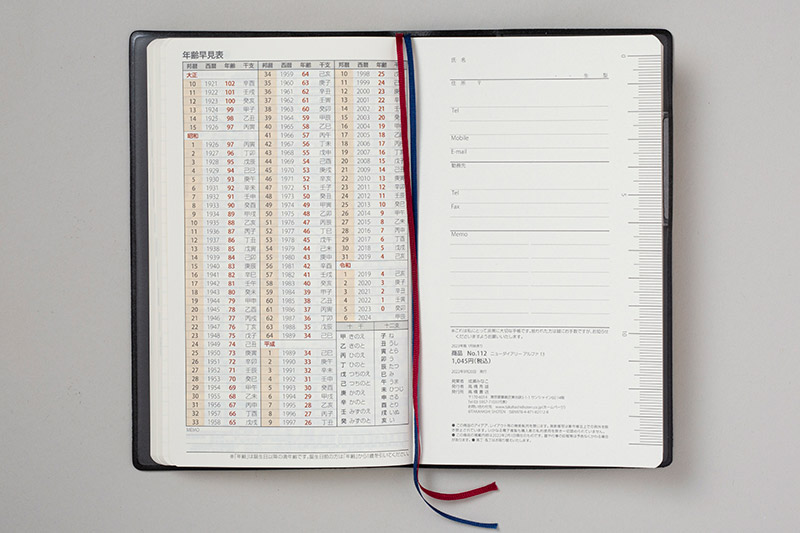 年齢早見表
邦暦 西暦 年齢 干支
大正
10 1921 102 辛酉
11 1922 101 壬戌
12 1923 100 癸亥
13 1924 99 甲子
14 1925 98 乙丑
15 1926 97 丙寅
昭和
1 1926 97 丙寅
2 1927 96 丁卯
3 1928 95 戊辰
4 1929 94 己巳
5 1930 93 庚午
6 1931 92 辛未
7 1932 91 壬申
8 1933 90 癸酉
9 1934 89 甲戌
10 1935 88 乙亥
11 1936 87 丙子
12 1937 86 丁丑
13 1938 85 戊寅
14 1939 84 己卯
15 1940 83 庚辰
16 1941 82 辛巳
17 1942 81 壬午
18 1943 80 癸未
19 1944 79 甲申
20 1945 78 乙酉
21 1946 77 丙戌
22 1947 76 丁亥
23 1948 75 戊子
24 1949 74 己丑
25 1950 73 庚寅
26 1951 72 辛卯
27 1952 71 壬辰
28 1953 70 癸巳
29 1954 69 甲午
30 1955 68 乙未
31 1956 67 丙申
32 1957 66 丁酉
33 1958 65 戊戌
34 1959 64 己亥
35 1960 63 庚子
36 1961 62 辛丑
37 1962 61 壬寅
38 1963 60 癸卯
39 1964 59 甲辰
40 1965 58 乙巳
41 1966 57 丙午
42 1967 56 丁未
43 1968 55 戊申
44 1969 54 己酉
45 1970 53 庚戌
46 1971 52 辛亥
47 1972 51 壬子
48 1973 50 癸丑
49 1974 49 甲寅
50 1975 48 乙卯
51 1976 47 丙辰
52 1977 46 丁巳
53 1978 45 戊午
54 1979 44 己未
55 1980 43 庚申
56 1981 42 辛酉
57 1982 41 壬戌
58 1983 40 癸亥
59 1984 39 甲子
60 1985 38 乙丑
61 1986 37 丙寅
62 1987 36 丁卯
63 1988 35 戊辰
64 1989 34 己巳
平成
1 1989 34 己巳
2 1990 33 庚午
3 1991 32 辛未
4 1992 31 壬申
5 1993 30 癸酉
6 1994 29 甲戌
7 1995 28 乙亥
8 1996 27 丙子
9 1997 26 丁丑
10 1998 25
11 1999 24
12 2000 23
13 2001 22
14 2002 21
15 2003 20
16 2004 19
17 2005 18
18 2006 17
19 2007 16
20 2008 15
21 2009 14
22 2010 13
23 2011 12 辛卯
24 2012 11 壬辰
25 2013 10 癸巳
26 2014 9 甲午
27 2015 8 乙未
28 2016 7 丙申
29 2017 6 丁酉
30 2018 5 戊戌
31 2019 4 己亥
令和
1 2019 4 己亥
2 2020 3 庚子
3 2021 2 辛丑
4 2022 1 壬寅
5 2023 0 癸卯
6 2024 甲辰
十干 十二支
甲 きのえ 子 ね
乙 きのと 丑 うし
丙 ひのえ 寅 とら
丁 ひのと 卯 う
戊 つちのえ 辰 たつ
己 つちのと 巳 み
庚 かのえ 午 うま
辛 かのと 未 ひつじ
壬 みずのえ 申 さる
癸 みずのと 酉 とり
戌 いぬ
亥 い
MEMO
氏名
年 型
住所 〒
Tel
Mobile
E-mail
勤務先
Tel
Fax
Memo
0
5
10
商品 No.112 ニューダイアリー アルファ 13
1,045円(税込)